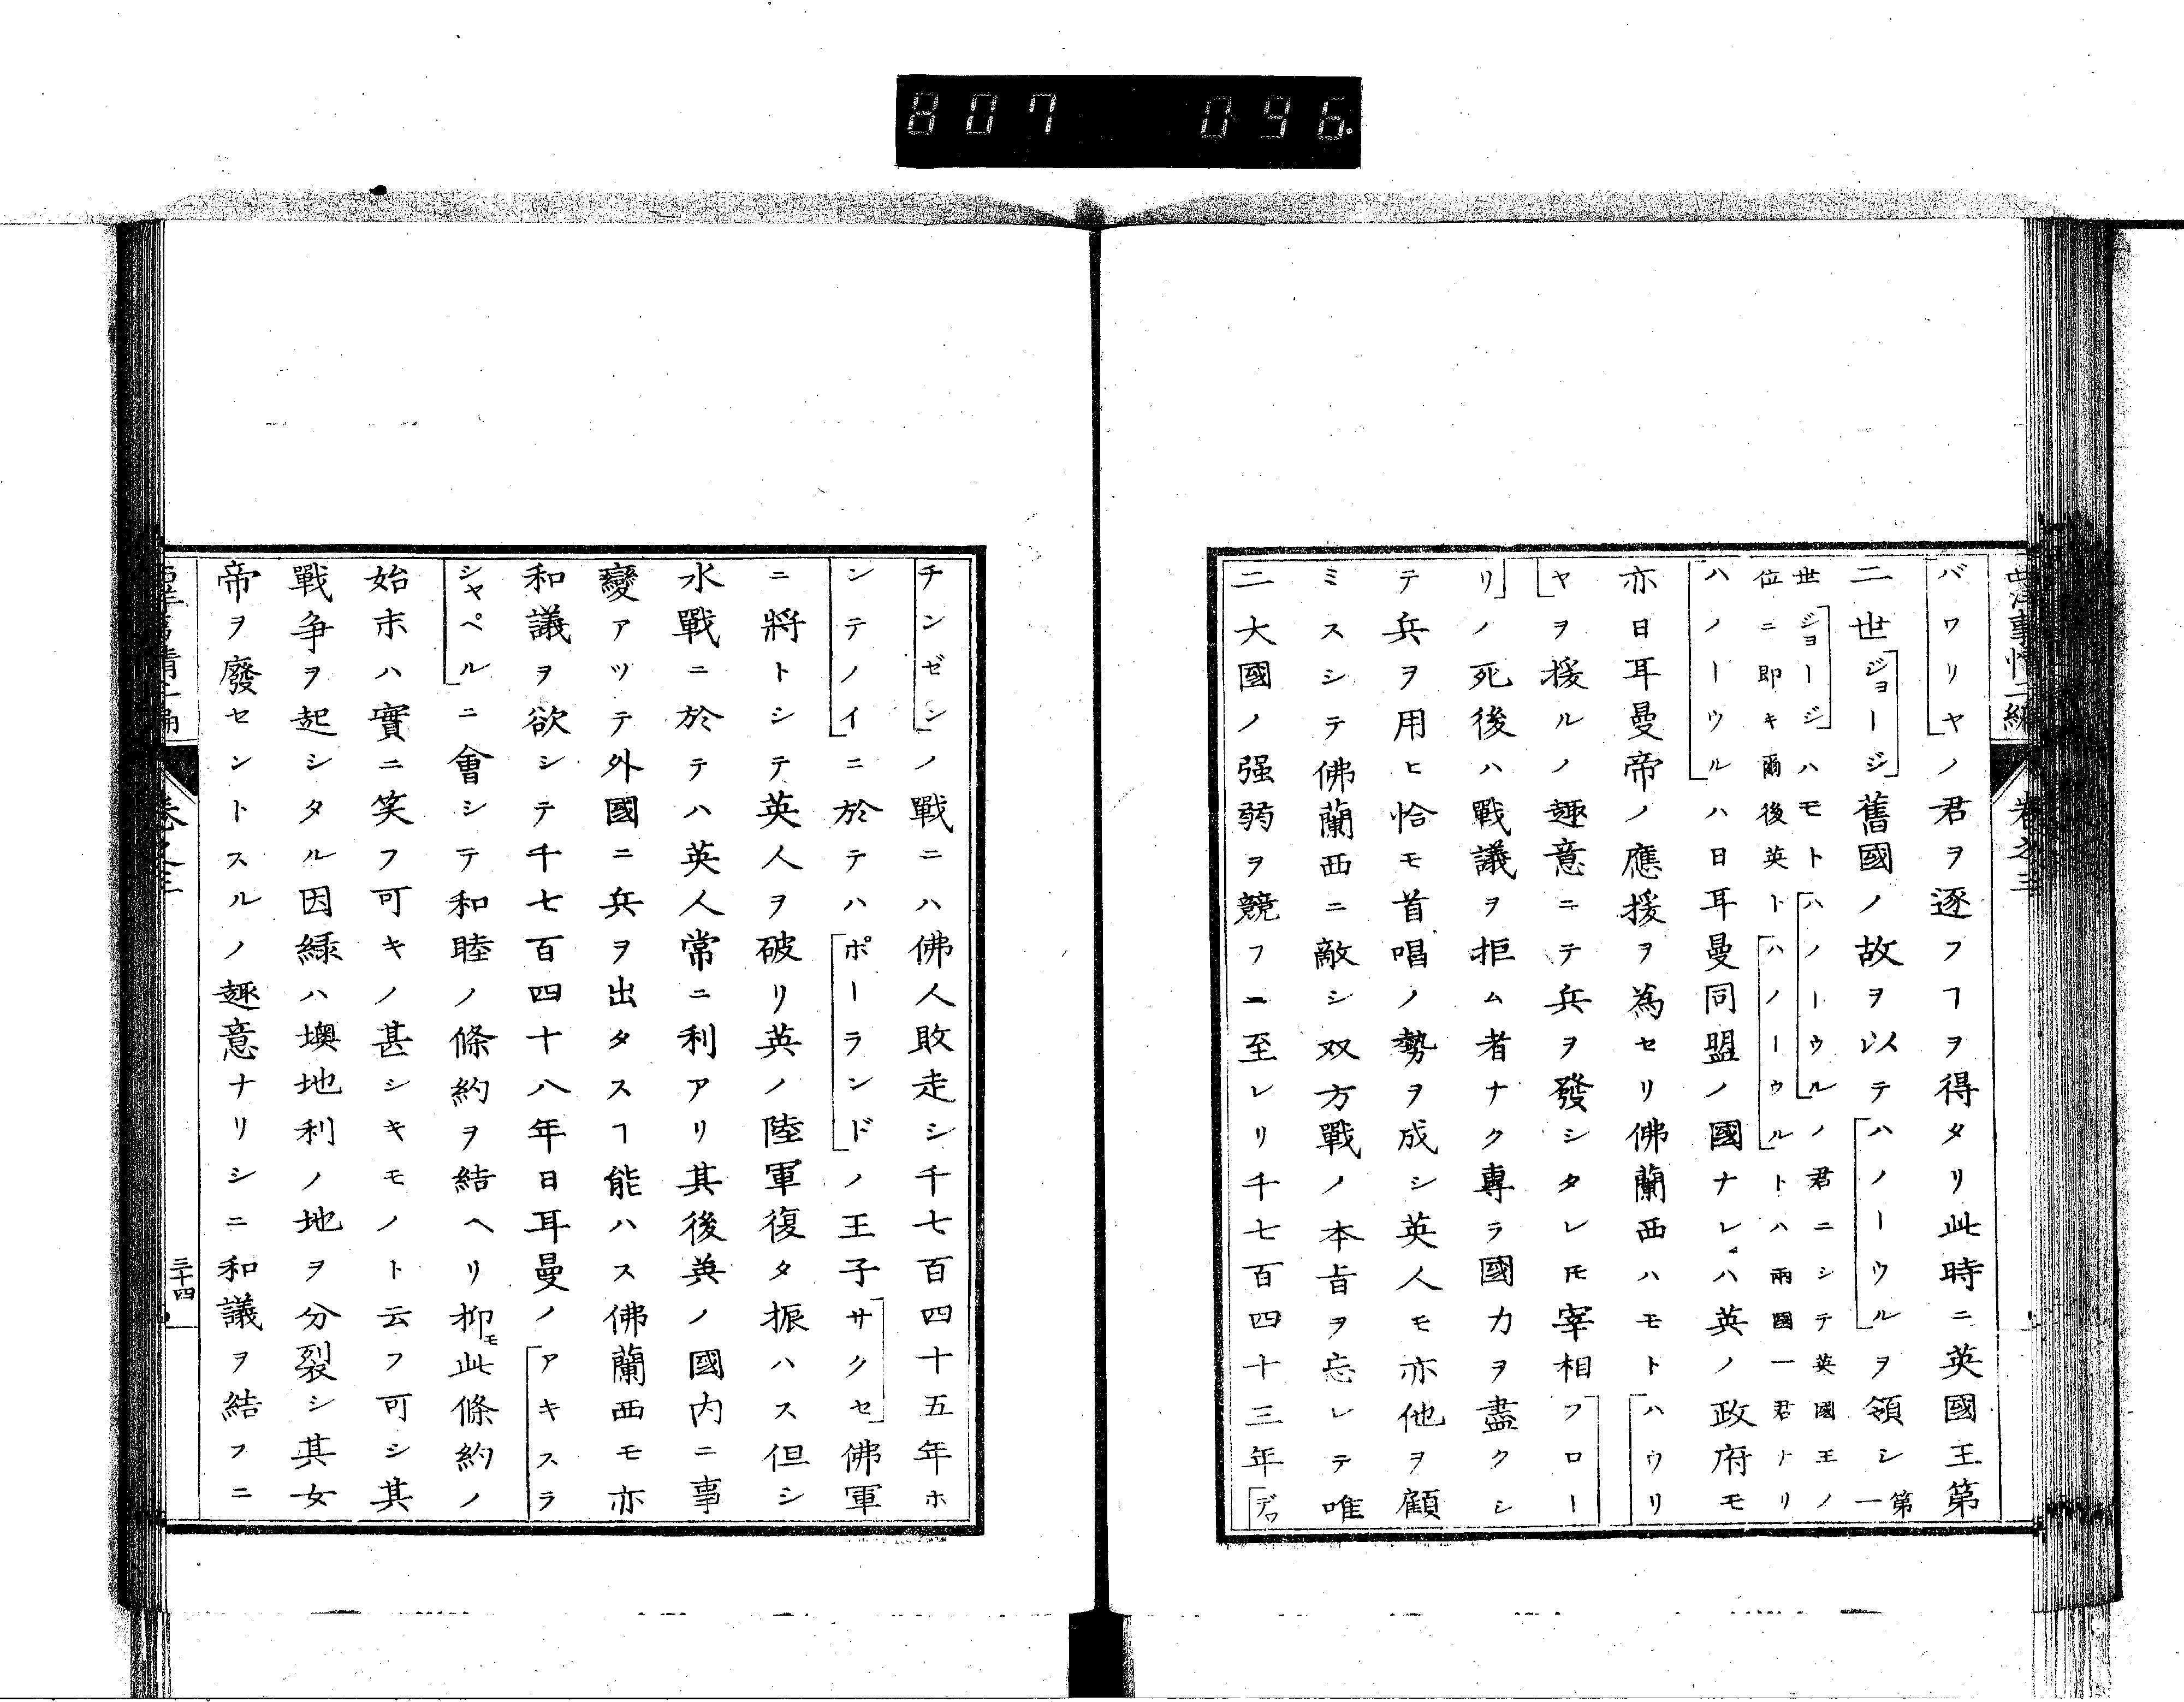 807 096
西洋事情二編 卷之三
バワリヤノ君ヲ逐フヿヲ得タリ此時ニ英國王第
二世ジョージ舊國ノ故ヲ以テハノーウルヲ領シ第一
世ジョージハモトハノーウルノ君ニシテ英國王ノ
位ニ即キ爾後英トハノーウルトハ兩國一君トナリ
ハノーウルハ日耳曼同盟ノ國ナレハ英ノ政府モ
亦日耳曼帝ノ應援ヲ為セリ佛蘭西ハモトハウリ
ヤヲ援ルノ趣意ニテ兵ヲ發シタレ𪜈宰相フロー
リノ死後ハ戰議ヲ拒ム者ナク專ラ國力ヲ盡クシ
テ兵ヲ用ヒ恰モ首唱ノ勢ヲ成シ英人モ亦他ヲ顧
ミスシテ佛蘭西ニ敵シ双方戰ノ本旨ヲ忘レテ唯
二大國ノ强弱ヲ競フニ至レリ千七百四十三年デッ
チンゼンノ戰ニハ佛人敗走シ千七百四十五年ホ
ンテノイニ於テハポーランドノ王子サクセ佛軍
ニ將トシテ英人ヲ破リ英ノ陸軍復タ振ハス但シ
水戰ニ於テハ英人常ニ利アリ其後英ノ國内ニ事
變アツテ外國ニ兵ヲ出タスヿ能ハス佛蘭西モ亦
和議ヲ欲シテ千七百四十八年日耳曼ノアキスラ
シャペルニ會シテ和睦ノ條約ヲ結ヘリ抑モ此條約ノ
始末ハ實ニ笑フ可キノ甚シキモノト云フ可シ其
戰爭ヲ起シタル因緣ハ墺地利ノ地ヲ分裂シ其女
帝ヲ廢セントスルノ趣意ナリシニ和議ヲ結フニ
西洋事情二編 卷之三 三十四